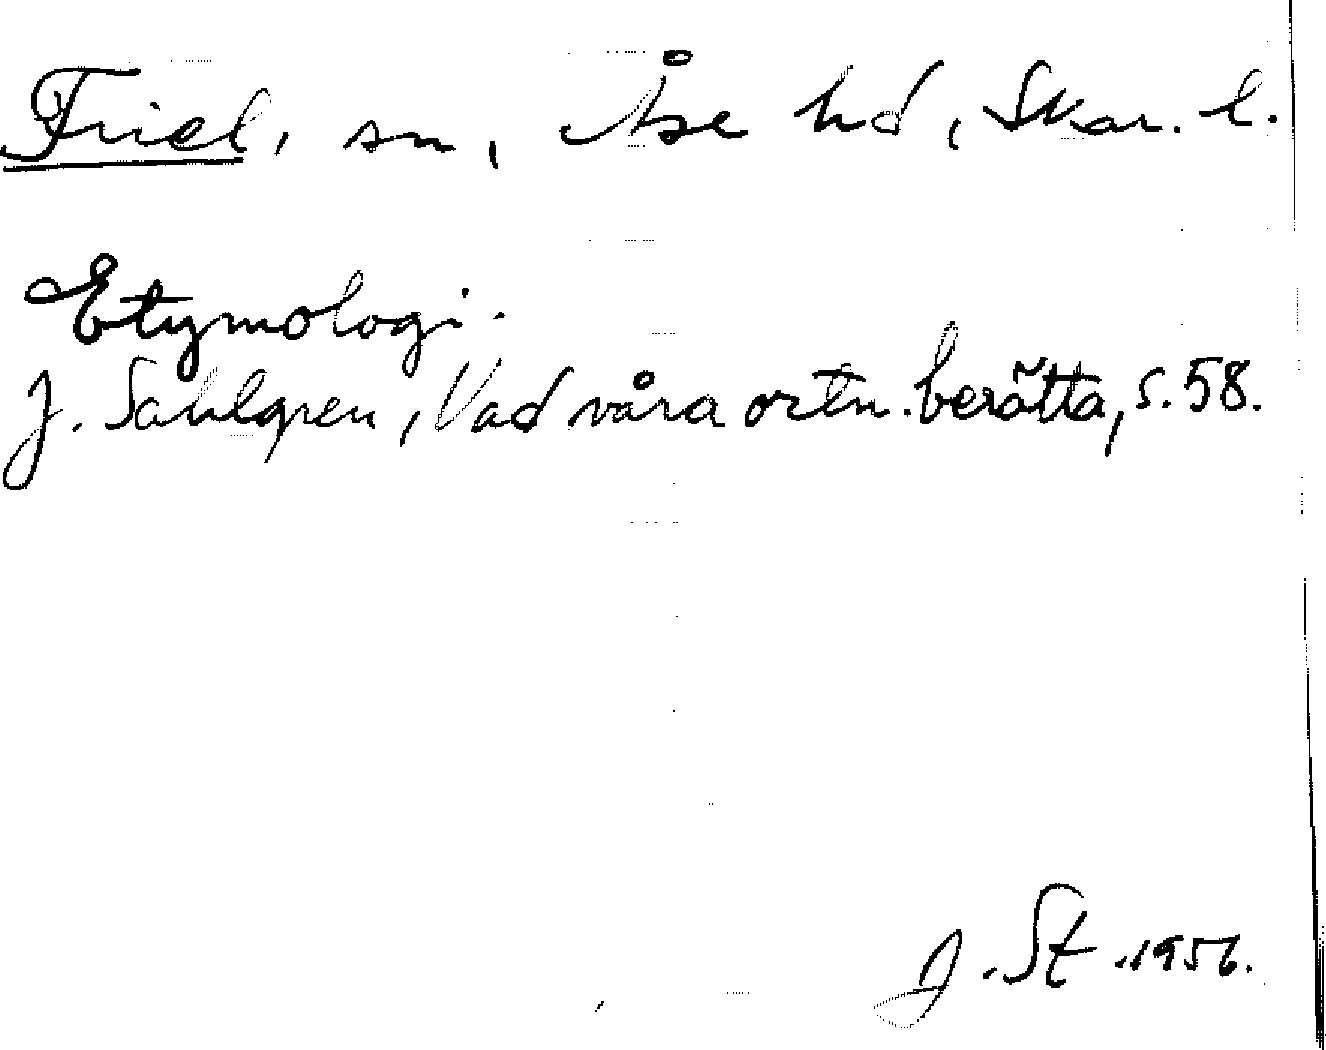 Friel, sn, Åse hd, Skar. l.
Etymologi.
J. Sahlgren, Vad våra ortn. berätta, s. 58.
J. St. 1956.